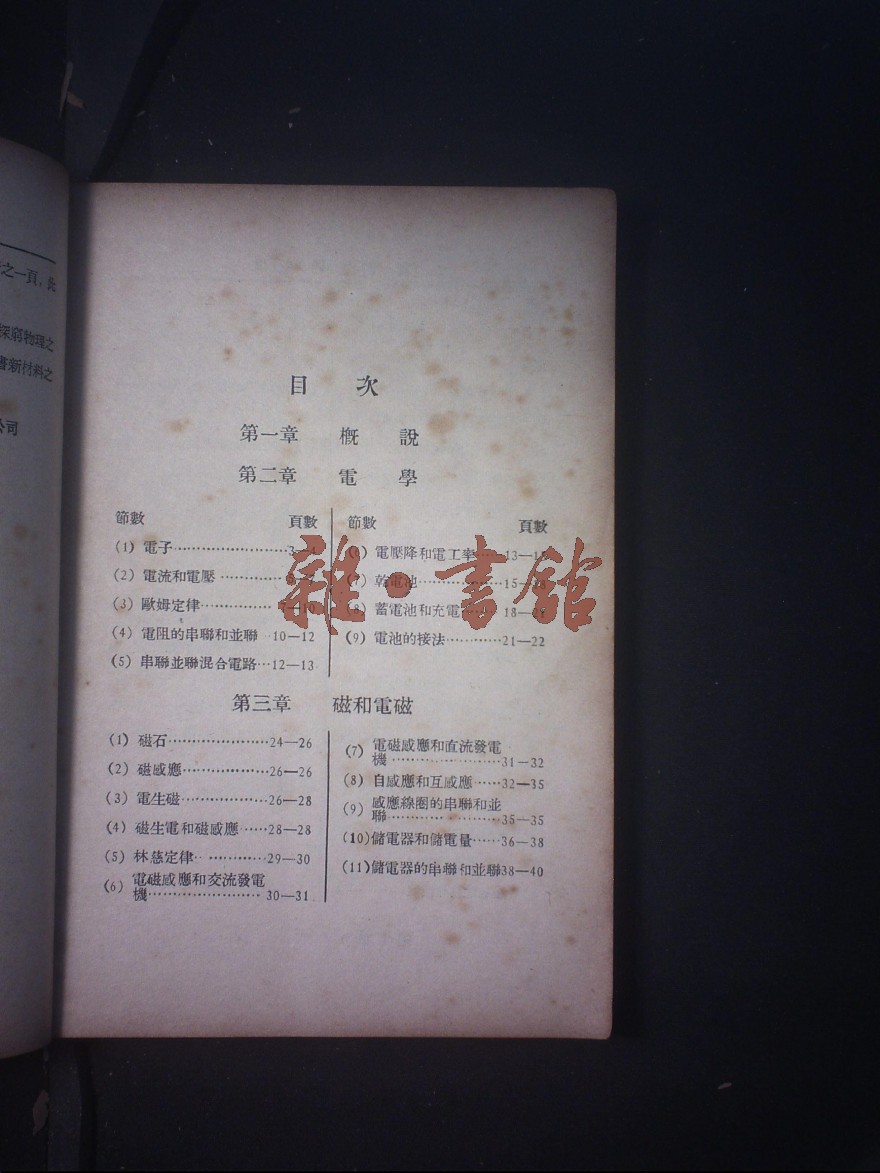 之一頁，
探窮物理之
著新材料之
公司
目 次
第一章 概 說
第二章 電 學
節數 頁數
(1) 電子……………………3—4
(2) 電流和電壓…………
(3) 歐姆定律……………7—10
(4) 電阻的串聯和並聯 10—12
(5) 串聯並聯混合電路…12—13
節數 頁數
(6) 電壓降和電工率……13—15
(7) 乾電池………………15—
(8) 蓄電池和充電 18—21
(9) 電池的接法…………21—22
雜·書館
第三章 磁和電磁
(1) 磁石…………………24—26
(2) 磁感應………………26—26
(3) 電生磁………………26—28
(4) 磁生電和磁感應……28—28
(5) 林慈定律……………29—30
(6) 電磁感應和交流發電
機……………………30—31
(7) 電磁感應和直流發電
機……………………31—32
(8) 自感應和互感應……32—35
(9) 感應線圈的串聯和並
聯……………………35—35
(10) 儲電器和儲電量……36—38
(11) 儲電器的串聯和並聯38—40